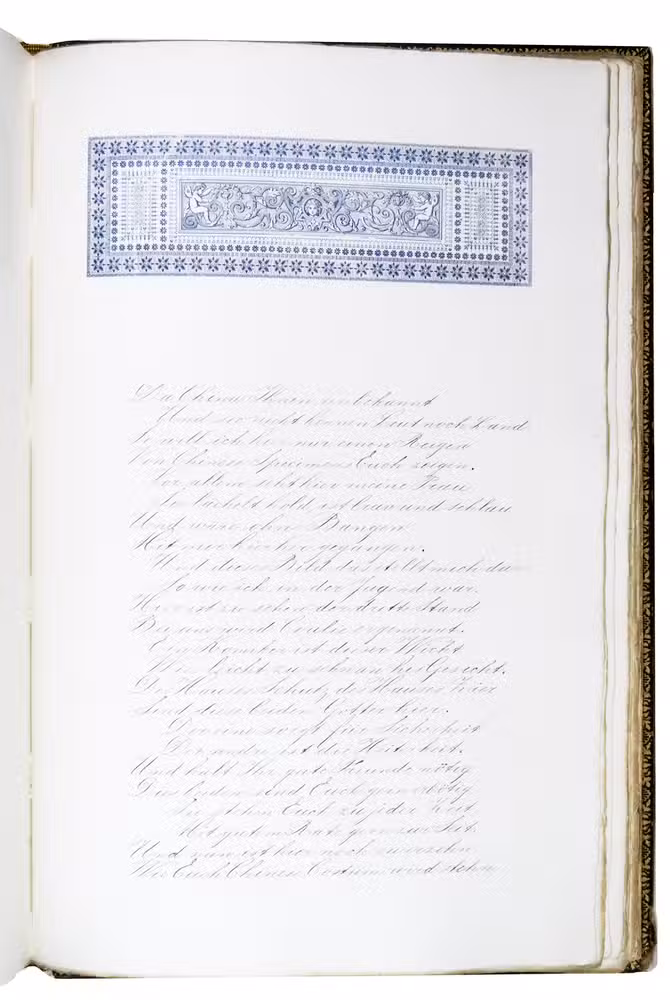 Da Chinas Herrn unbekannt
Und wer nicht kennen Leut noch Land
So will ich hier nur einen Reigen
Von Chinese Specimens Euch zeigen.
Vor allem seht hier meine Frau
Sie lächelt hold, ist brav und schlau
Und wäre ohne Bangen
Mit mir hierher gegangen.
Und dieses Bild das stellt mich dar
So wie ich in der Jugend war.
Hier ist zu sehen der dritte Stand
Bei uns wird Coulis er genannt.
Ein ist dieser Wicht
Wie leicht zu schau'n des Gesicht.
Des Hauses Schutz des Hauses Zier
Sind diese beiden Götter hier.
Der eine sorgt für Sicherheit
Der andre ist die Heiterkeit.
Und habt Ihr gute Freunde nötig
Die beiden sind Euch gern erbötig
Sie stehen Euch zu jeder Zeit
Mit gutem Rate gern zur Seit.
Und nun ist hier noch zu ersehn
Wie Euch Chinese Costüm wird stehn